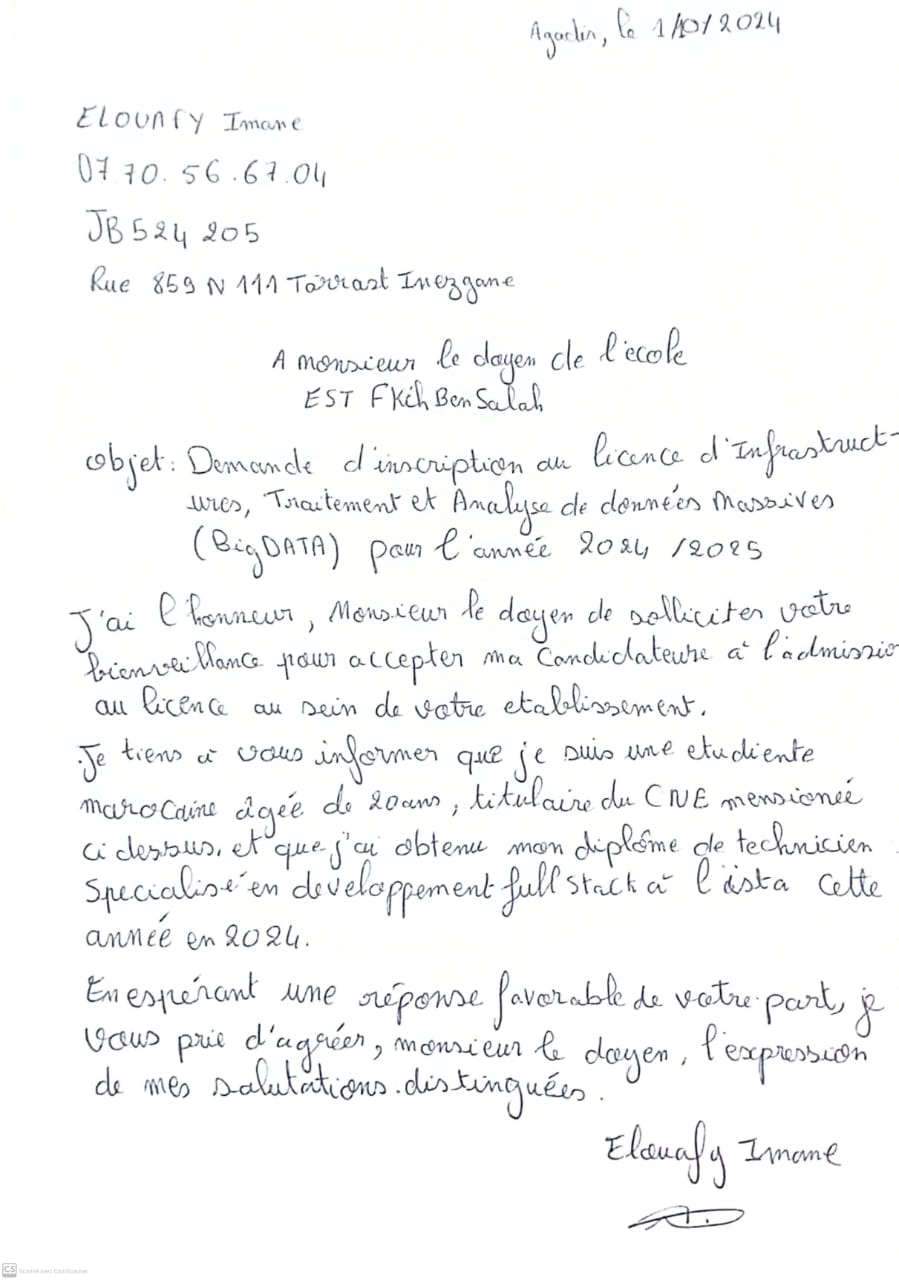 Agadir, le 1/10/2024
ELOUAFY Imane
07.70.56.67.04
JB524 205
Rue 859 N 111 Tarrast Inezgane
A monsieur le doyen de l'ecole
EST FKih Ben Salah
Objet: Demande d'inscription au licence d'Infrastruct-
ures, Traitement et Analyse de données Massives
(Big DATA) pour l'année 2024 /2025
J'ai l'honneur, Monsieur le doyen de solliciter votre
bienveillance pour accepter ma Candidateure à l'admissio
au licence au sein de votre etablissement.
Je tiens à vous informer que je suis une etudiente
marocaine âgée de 20ans, titulaire du CNE mensionéé
ci dessus, et que j'ai obtenu mon diplôme de technicien
Specialisé en developpement full stack à l'ista cette
annéé en 2024.
En espérant une réponse favorable de votre part, je
vous prie d'agréer, monsieur le doyen, l'expression
de mes salutations.distinguées.
Elouafy Imane
CS Scanned with CamScanner